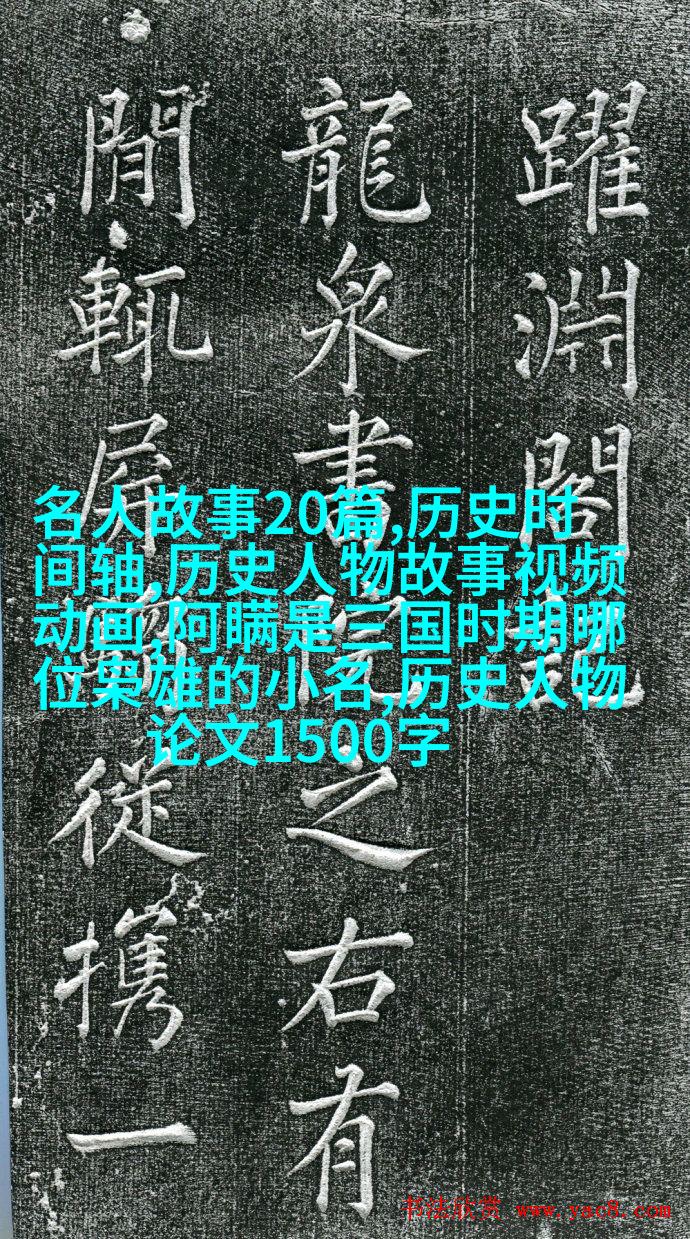 躍淵閣記
龍泉書院之右有
閒輒屏騶從攜一
名人故事20篇,历史时
间轴,历史人物故事视频
动画,阿瞒是三国时期哪
位枭雄的小名,历史人物
论文1500字
书法欣赏 www.yac8.com